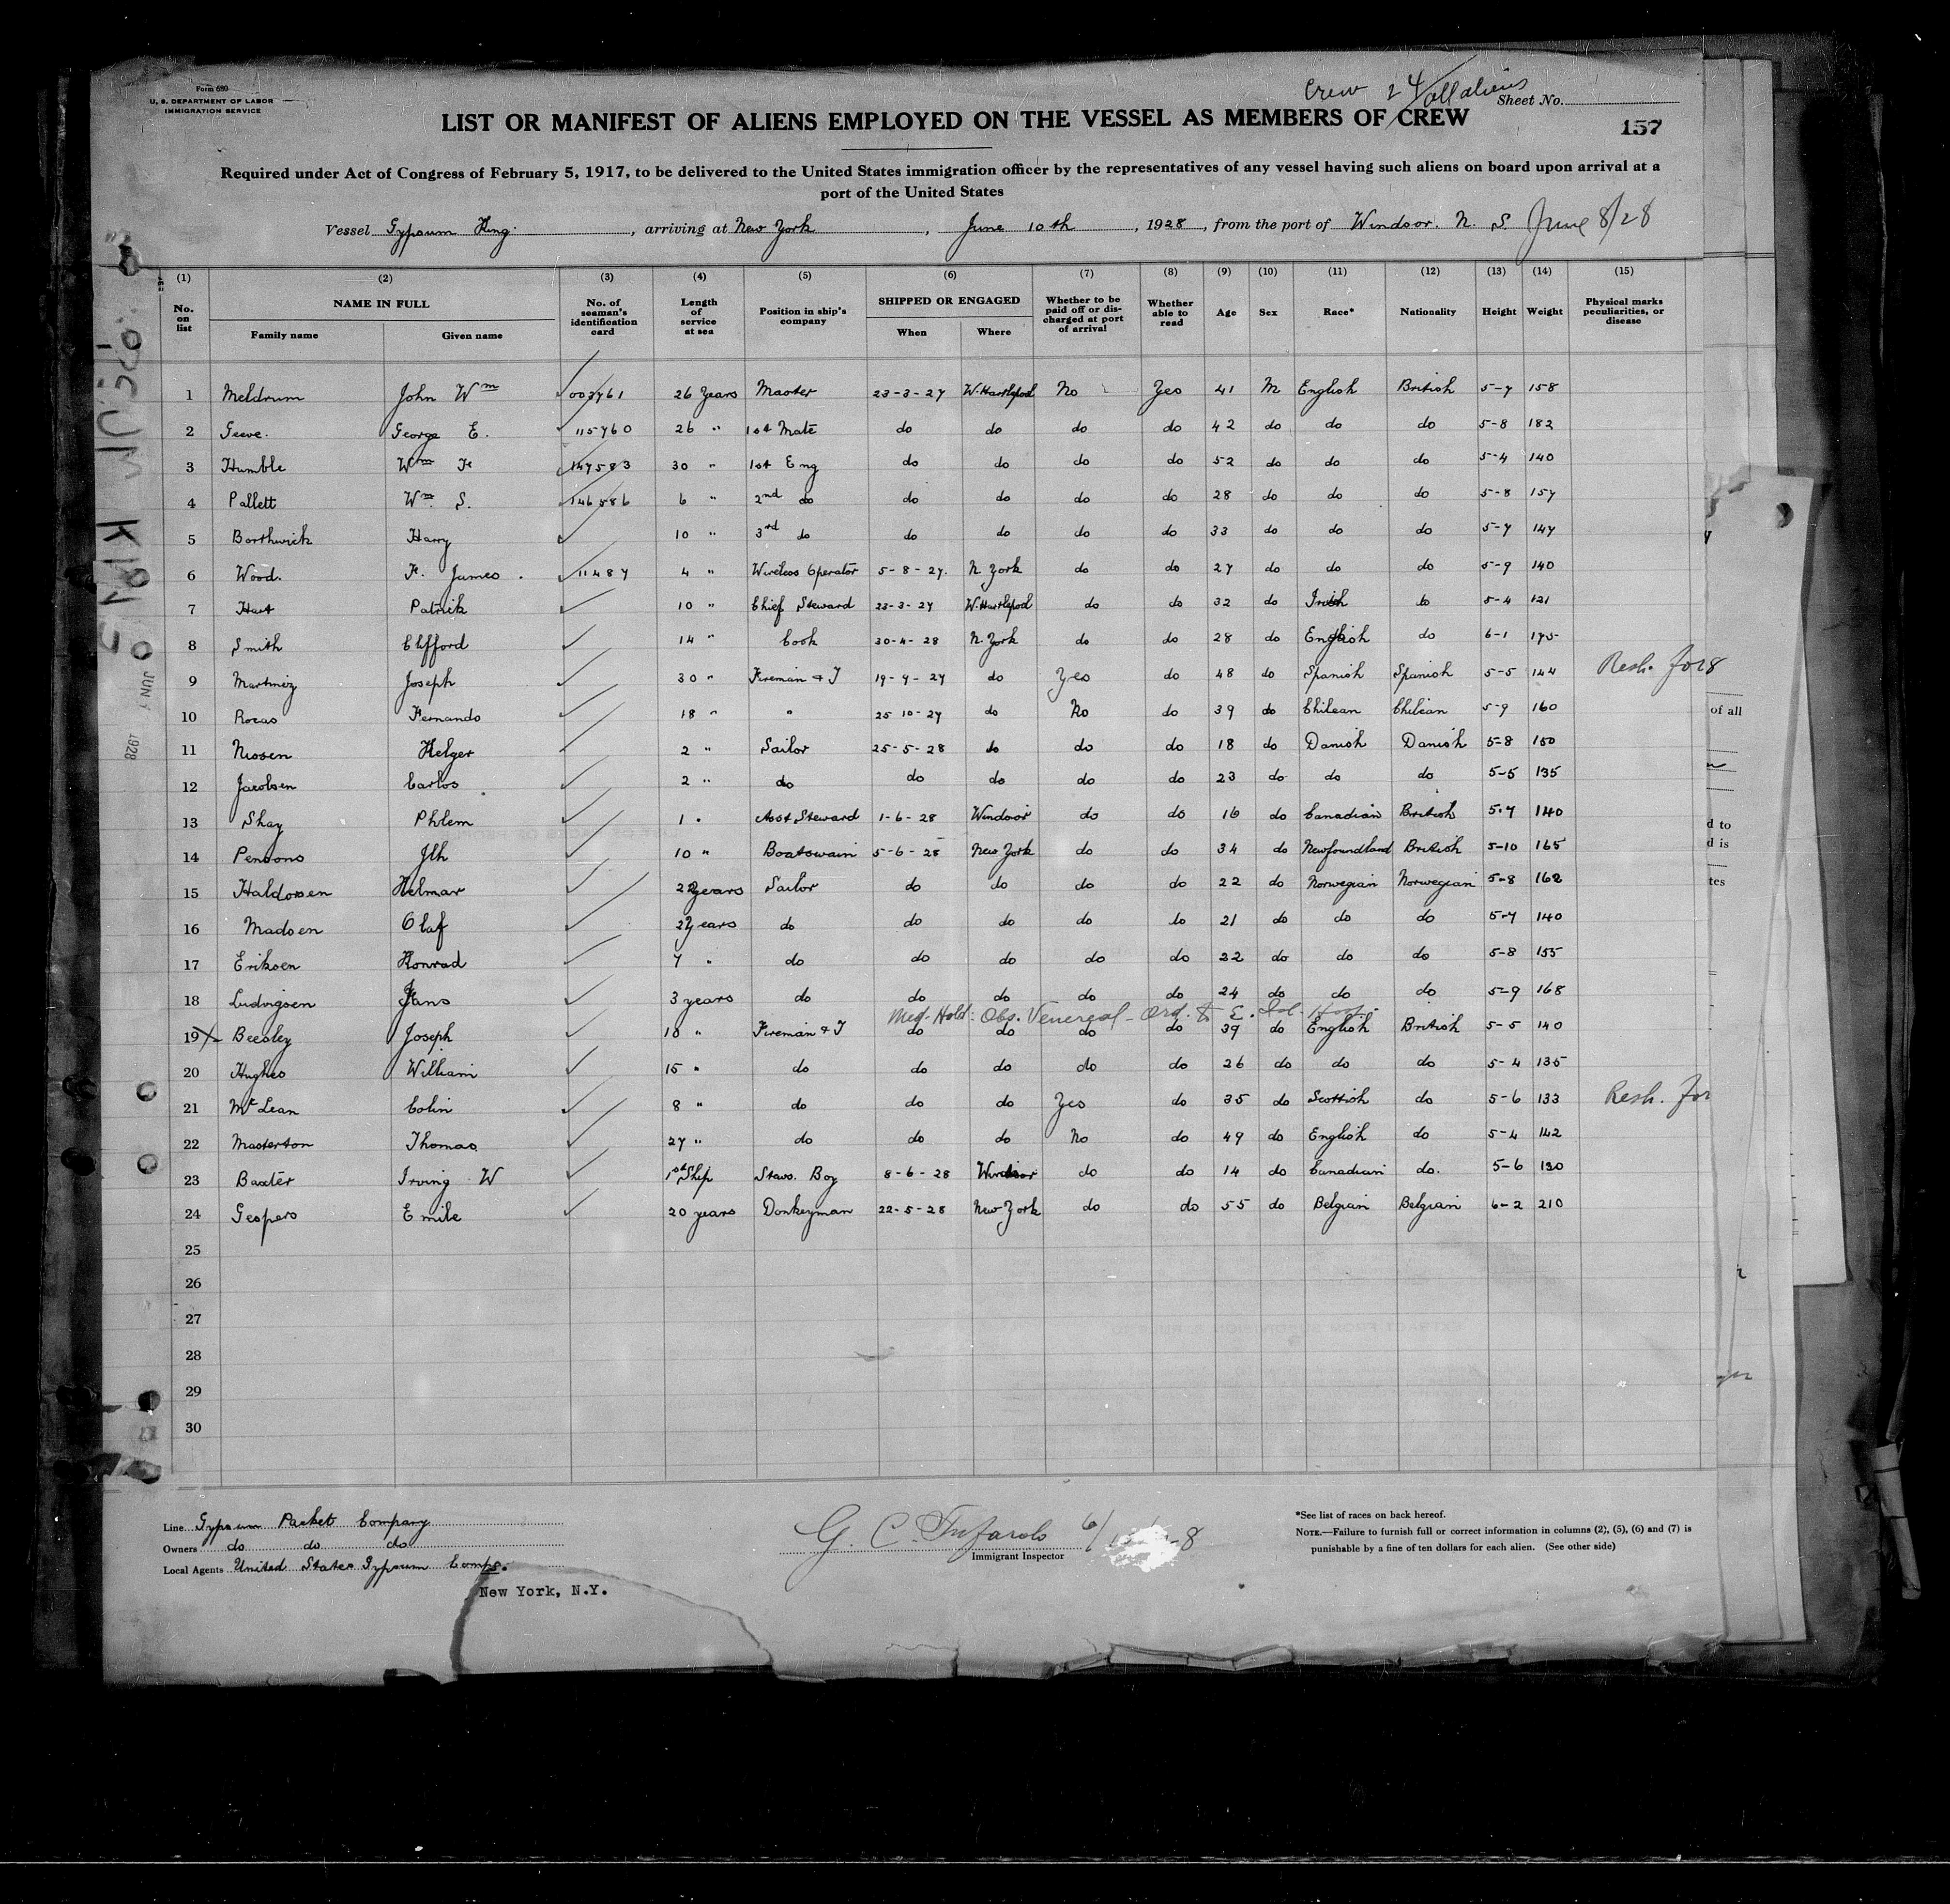 Form 680
U. S. DEPARTMENT OF LABOR
IMMIGRATION SERVICE
Crew 24/all aliens
Sheet No.
LIST OR MANIFEST OF ALIENS EMPLOYED ON THE VESSEL AS MEMBERS OF CREW
157
Required under Act of Congress of February 5, 1917, to be delivered to the United States immigration officer by the representatives of any vessel having such aliens on board upon arrival at a
port of the United States
Vessel Gypsum King., arriving at New York, June 10th, 1928, from the port of Windsor. N. S. June 8/28
(1) (2) (3) (4) (5) (6) (7) (8) (9) (10) (11) (12) (13) (14) (15)
No. on list NAME IN FULL Family name Given name No. of seaman's identification card Length of service at sea Position in ship's company SHIPPED OR ENGAGED When Where Whether to be paid off or discharged at port of arrival Whether able to read Age Sex Race* Nationality Height Weight Physical marks peculiarities, or disease
1 Meldrum John Wm 003761 26 Years Master 23-3-27 W. Hartlepool No Yes 41 M English British 5-7 158
2 Geeve. George E. 115760 26 " 1st Mate do do do do 42 do do do 5-8 182
3 Humble Wm 147583 30 " 1st Eng do do do do 52 do do do 5-4 140
4 Pallett Wm. S. 146586 6 " 2nd do do do do do 28 do do do 5-8 157
5 Borthwick Harry 10 " 3rd do do do do do 33 do do do 5-7 147
6 Wood. F. James. 11487 4 " Wireless Operator 5-8-27. N. York do do 27 do do do 5-9 140
7 Hart Patrick 10 " Chief Steward 23-3-27 W. Hartlepool do do 32 do Irish do 5-4 121
8 Smith Clifford 14 " Cook 30-4-28 N. York do do 28 do English do 6-1 175
9 Martinez Joseph 30 " Fireman & T 19-9-27 do Yes do 48 do Spanish Spanish 5-5 144 Resh. for 8
10 Rocas Fernando 18 " " 25 10-27 do No do 39 do Chilean Chilean 5-9 160
11 Nissen Helger 2 " Sailor 25-5-28 do do do 18 do Danish Danish 5-8 150
12 Jacobsen Carlos 2 " do do do do do 23 do do do 5-5 135
13 Shay Phlem 1 " Asst Steward 1-6-28 Windsor do do 16 do Canadian British 5-7 140
14 Pensons Jlh 10 " Boatswain 5-6-28 New York do do 34 do Newfoundland British 5-10 165
15 Haldorsen Helmar 2 years Sailor do do do do 22 do Norwegian Norwegian 5-8 162
16 Madsen Olaf 2 years do do do do do 21 do do do 5-7 140
17 Eriksen Konrad 7 " do do do do do 22 do do do 5-8 155
18 Ludvigsen Hans 3 years do do do do do 24 do do do 5-9 168
Med. Hold: Obs. Venereal - Ord. to E. Isl. Hosp.
19 X Beesley Joseph 18 " Fireman & T do do do do 39 do English British 5-5 140
20 Hughes William 15 " do do do do do 26 do do do 5-4 135
21 McLean Colin 8 " do do do Yes do 35 do Scottish do 5-6 133 Resh. for
22 Masterton Thomas 27 " do do do No do 49 do English do 5-4 142
23 Baxter Irving W 1st Ship Stews. Boy 8-6-28 Windsor do do 14 do Canadian do. 5-6 130
24 Gespers Emile 20 years Donkeyman 22-5-28 New York do do 55 do Belgian Belgian 6-2 210
25
26
27
28
29
30
Line Gypsum Packet Company
Owners do do do
Local Agents United States Gypsum Comps.
New York, N.Y.
Immigrant Inspector
*See list of races on back hereof.
NOTE.—Failure to furnish full or correct information in columns (2), (5), (6) and (7) is
punishable by a fine of ten dollars for each alien. (See other side)
of all
d to
d is
tes
JUN
1928